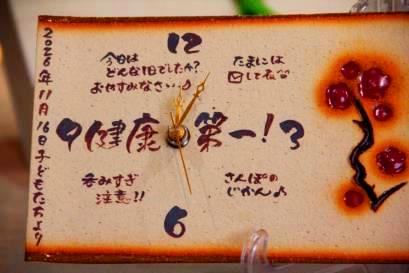 2026年11月16日子どもたちより
12
今日は
どんな1日でしたか?
おやすみなさい…♪
たまには
口してね
9 健康第一! 3
呑みすぎ
注意!!
さんぽの
じかん♪
6